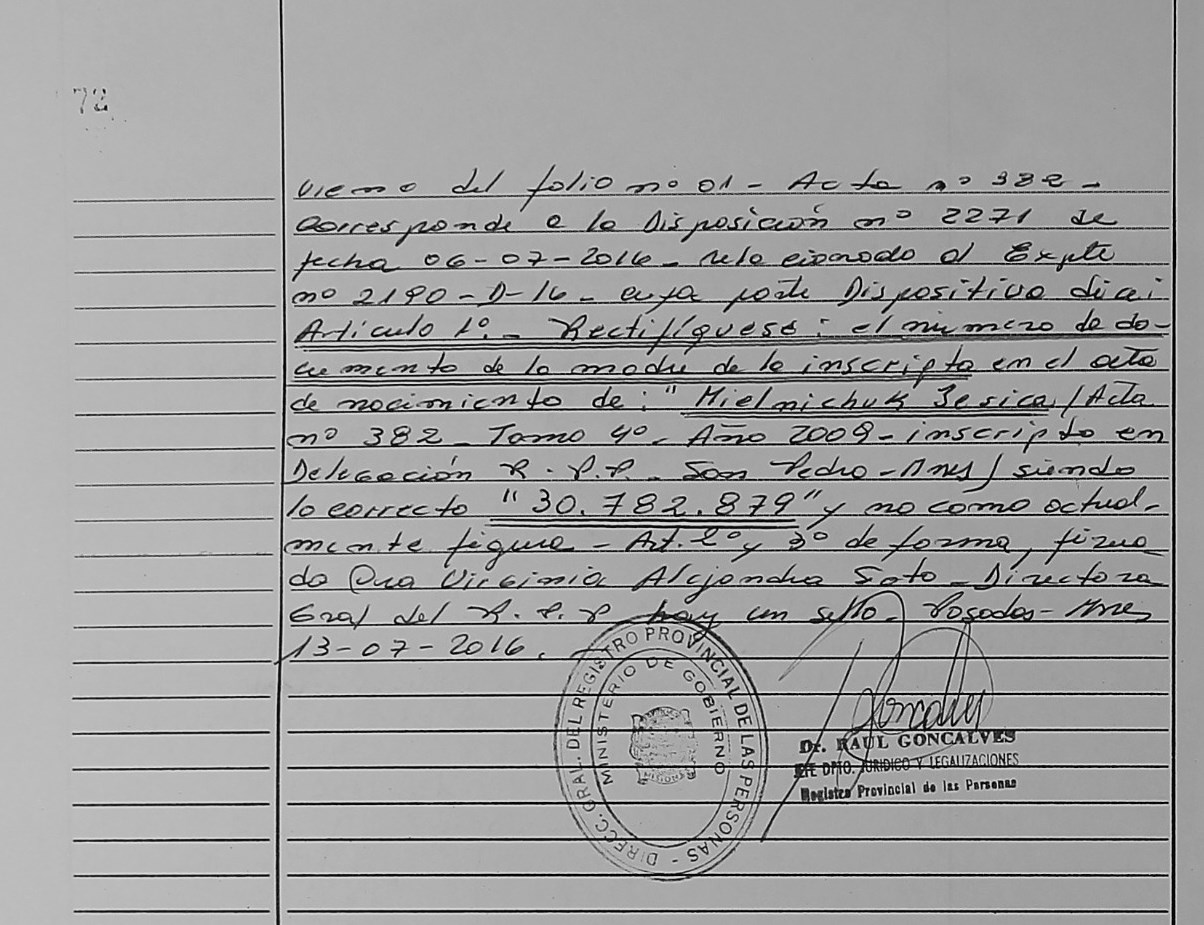 72
viene del folio nº 01 - Acta nº 382 -
Corresponde a la Disposición nº 2271 de
fecha 06-07-2016 - relacionado al Expte
nº 2190-D-16 - cuya parte Dispositiva dice:
Artículo 1º. - Rectifíquese: el número de do-
cumento de la madre de la inscripta en el acta
de nacimiento de: "Mielnichuk Jesica / Acta
nº 382 - Tomo 4º - Año 2009 - inscripto en
Delegación R.P.P. San Pedro - Mnes / siendo
lo correcto "30.782.879" y no como actual-
mente figura - Art. 2º y 3º de forma, firma-
do Dra Virginia Alejandra Soto - Directora
Gral del R.P.P hay un sello - Posadas - Mnes
13-07-2016.
DIRECC. GRAL. DEL REGISTRO PROVINCIAL DE LAS PERSONAS -
MINISTERIO DE GOBIERNO
MISIONES
Dr. RAUL GONCALVES
JEFE DPTO. JURIDICO Y LEGALIZACIONES
Registro Provincial de las Personas